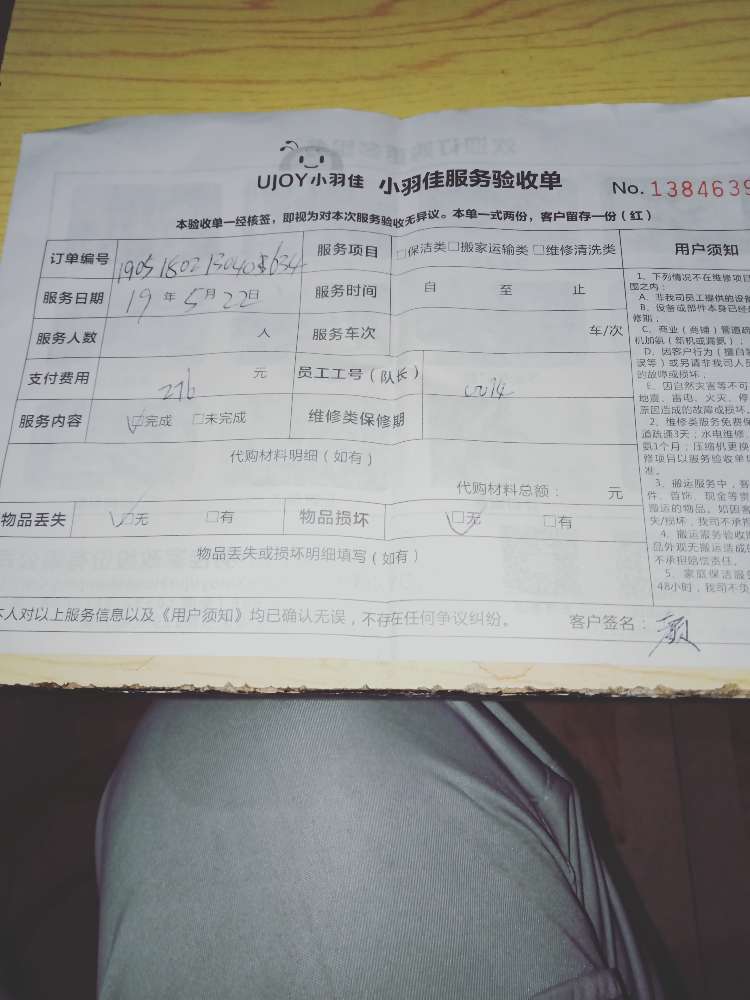 UJOY小羽佳 小羽佳服务验收单 No. 1384639
本验收单一经核签，即视为对本次服务验收无异议。本单一式两份，客户留存一份（红）
订单编号 服务项目 □保洁类□搬家运输类 □维修清洗类 用户须知
服务日期 19 年 5 月 22 日 服务时间 自 至 止
服务人数 人 服务车次 车/次
支付费用 276 元 员工工号（队长）
服务内容 □完成 □未完成 维修类保修期
代购材料明细（如有）
代购材料总额： 元
物品丢失 □无 □有 物品损坏 □无 □有
物品丢失或损坏明细填写（如有）
本人对以上服务信息以及《用户须知》均已确认无误，不存在任何争议纠纷。 客户签名：
1、下列情况不在维修项目
围之内：
A、非我司员工提供的设备
B、设备或部件本身已经
修期；
C、商业（商铺）管道疏
机加氨（新机或漏氨）；
D、因客户行为（擅自
误等）或另请非我司人员
的故障或损坏；
E、因自然灾害等不可
地震、雷电、火灾、停
原因造成的故障或损坏。
2、维修类服务免费保
道疏通3天；水电维修
氨1个月；压缩机更换
修项目以服务验收单
准。
3、搬运服务中，客
件、首饰、现金等贵
搬运的物品。如因客
失/损坏，我司不承担
4、搬运服务验收
品外观无搬运造成
不承担赔偿责任。
5、家庭保洁服
48小时，我司不负